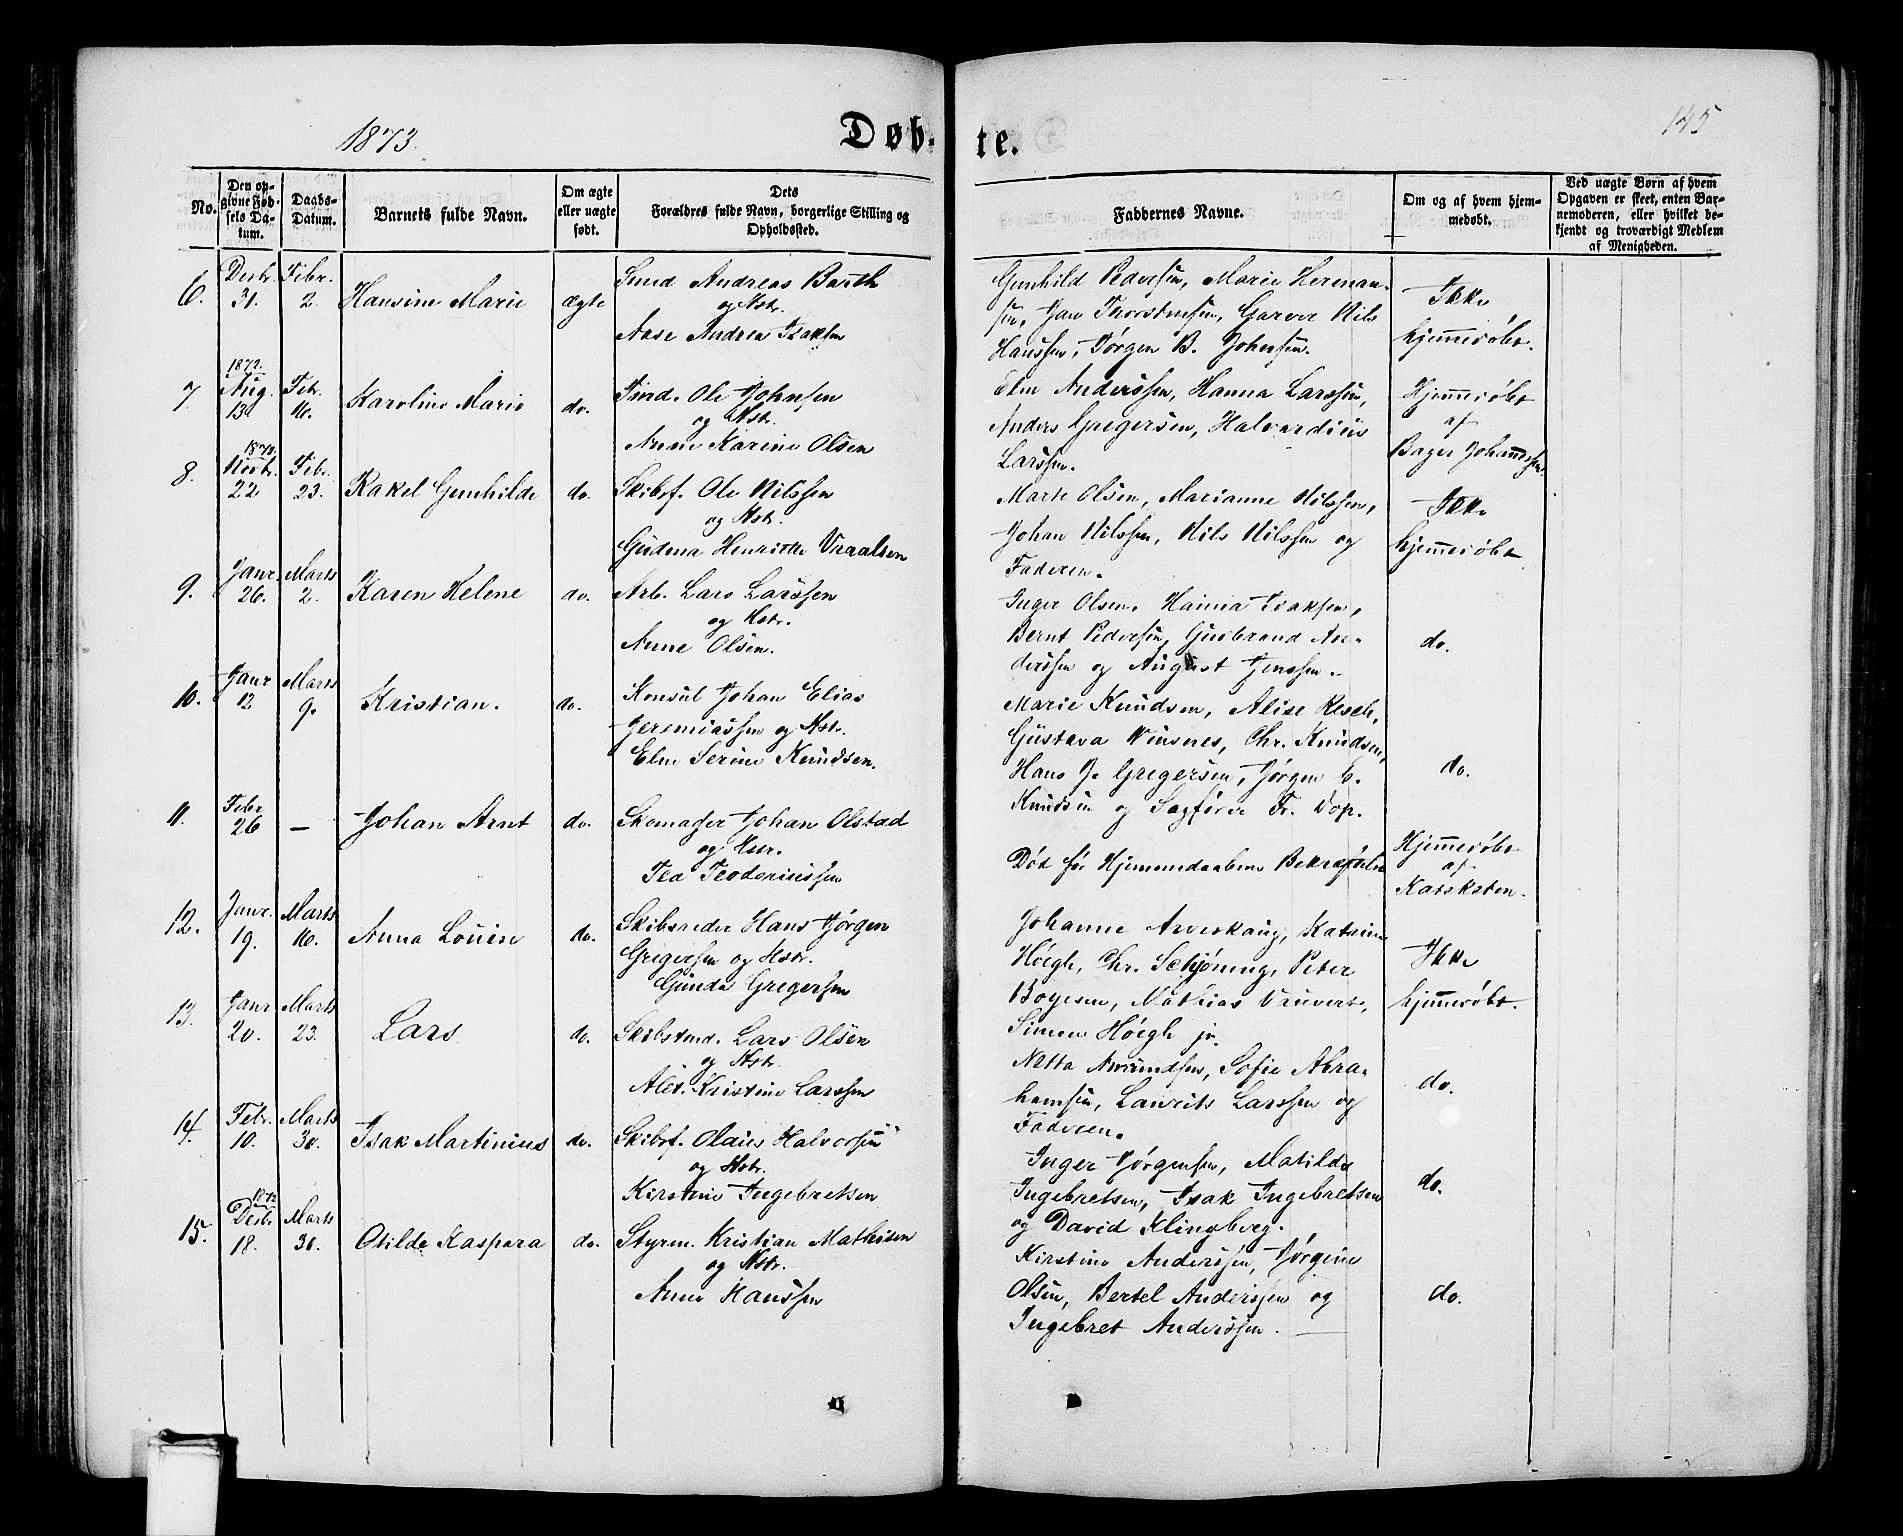 1873.
Døb-
te.
145
No.
Den op-
givne Fød-
sels Da-
tum.
Daabs-
Datum.
Barnets fulde Navn.
Om ægte
eller uægte
født.
Dets
Forældres fulde Navn, borgerlige Stilling og
Opholdssted.
Faddernes Navne.
Om og af hvem hjem-
medøbt.
Ved uægte Børn af hvem
Opgaven er skeet, enten Bar-
nemoderen, eller hvilket be-
kjendt og troværdigt Medlem
af Menigheden.
6.
Desbr.
31.
Febr.
2.
Hansine Marie
ægte
Smed Andreas Barth
og Hstr.
Aase Andrea Isaksen
Gunhild Pedersen, Marie Herman-
sen, Jan Thorstensen, Garver Nils
Hanssen, Jørgen B. Johnsen.
Ikke
hjemmedøbt.
7.
1872.
Aug.
13.
Febr.
16.
Karoline Marie
do.
Tind. Ole Johnsen
og Hstr.
Anne Karine Olsen
Elen Anderssen, Hanna Larssen,
Anders Gregersen, Halvardius
Larssen.
Hjemmedøbt
af
Bager Johannessen.
8.
1872.
Novbr.
22
Febr.
23.
Rakel Gunhilde
do.
Skibsf. Ole Nilssen
og Hstr.
Gudena Henriette Vraalsen
Marte Olsen, Marianne Nilssen,
Johan Nilssen, Nils Nilssen og
Faderen.
Ikke
hjemmedøbt
9.
Janr.
26.
Marts
2.
Karen Helene
do.
Arb. Lars Larssen
og Hstr.
Anne Olsen.
Inger Olsen, Hanna Isaksen,
Bernt Pedersen, Gudbrand An-
derssen og August Jenssen.
do.
10.
Janr
12
Marts
9.
Kristian.
do.
Konsul Johan Elias
Jeremiassen og Hstr.
Elen Serine Knudsen.
Marie Knudsen, Alise Resch,
Gustava Winsnes, Chr. Knudsen,
Hans J. Gregersen, Jørgen C.
Knudsen og Sagfører Fr. Dop.
do.
11.
Febr
26
—
Johan Arnt
do.
Skomager Johan Olstad
og Hstr.
Tea Teoderiussen
Død før Hjemmedaabens Bekræftelse
Hjemmedøbt
af
Kateketen.
12.
Janr.
19.
Marts
16.
Anna Louise
do.
Skibsreder Hans Jørgen
Gregersen og Hstr.
Gunda Gregersen
Johanne Aaveskaug, Katrine
Høegh, Chr. Schjöning, Peter
Boyesen, Mathias Vauvert,
Simon Høegh jr.
Ikke
hjemmedøbt.
13.
Janr
20.
Marts
23.
Lars
do.
Skibstmd. Lars Olsen
og Hstr.
Alet. Kristine Larssen
Netta Amundsen, Sofie Abra-
hamsen, Laurits Larssen og
Faderen.
do.
14.
Febr.
10.
Marts
30.
Isak Martinius
do.
Skibsf. Olaus Halvorsen
og Hstr.
Kirstine Ingebretsen
Inger Jørgensen, Matilde
Ingebretsen, Isak Ingebretsen
og David Klingberg.
do.
15.
1872
Desbr
18.
Marts
30.
Otilde Kaspara
do.
Styrm. Kristian Mathisen
og Hstr.
Anne Hanssen
Kirstine Anderssen, Jørgine
Olsen, Bertel Anderssen og
Ingebret Anderssen.
do.